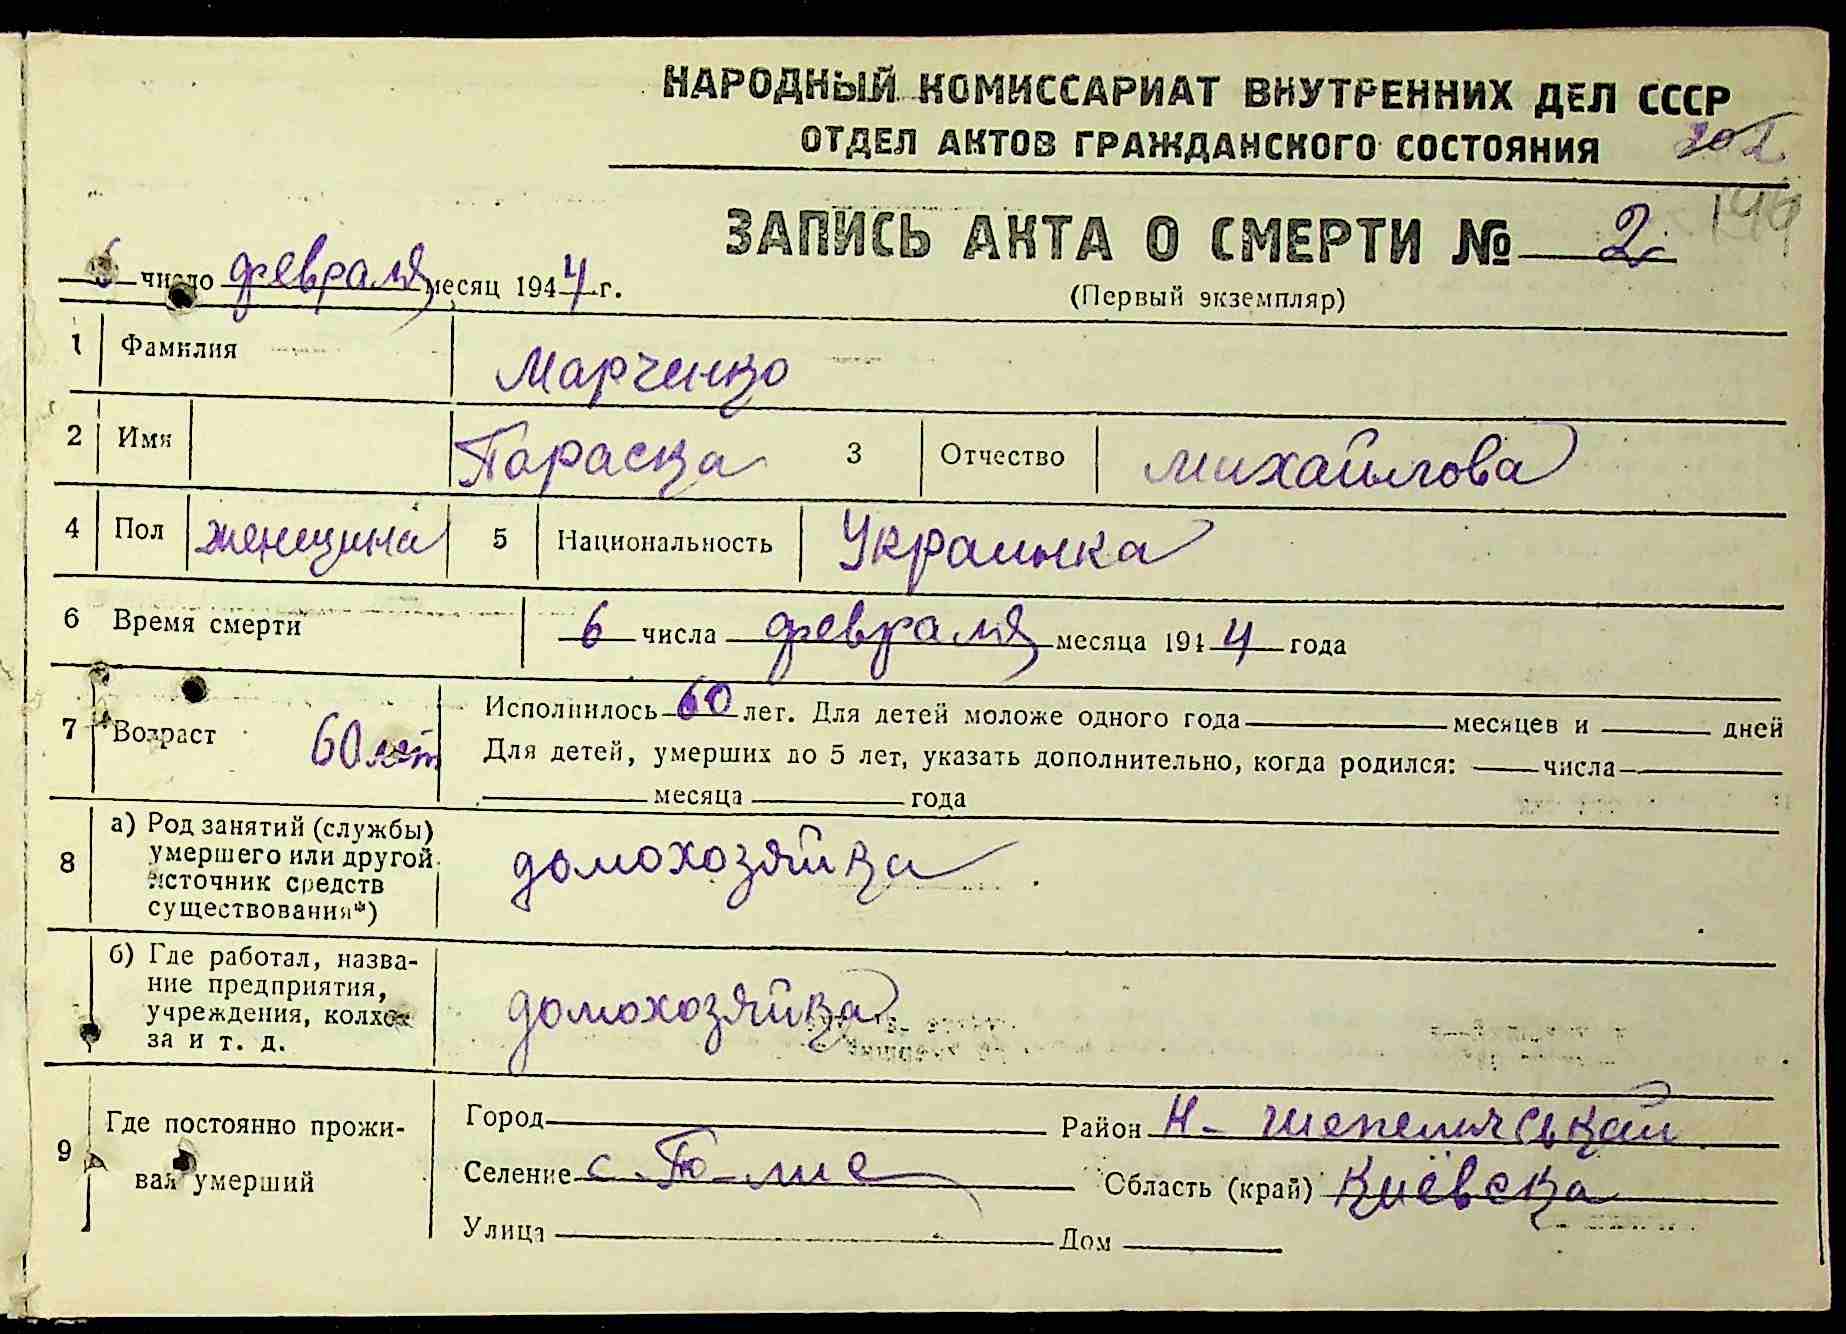 НАРОДНЫЙ КОМИССАРИАТ ВНУТРЕННИХ ДЕЛ СССР
ОТДЕЛ АКТОВ ГРАЖДАНСКОГО СОСТОЯНИЯ
ЗАПИСЬ АКТА О СМЕРТИ № 2
146
6 число февраля месяц 1944 г.
(Первый экземпляр)
1 Фамилия Марченко
2 Имя Параска 3 Отчество Михайлова
4 Пол женщина 5 Национальность Украинка
6 Время смерти 6 числа февраля месяца 1944 года
7 Возраст 60 лет Исполнилось 60 лет. Для детей моложе одного года месяцев и дней
Для детей, умерших до 5 лет, указать дополнительно, когда родился: числа
месяца года
8 а) Род занятий (службы) умершего или другой источник средств существования*) домохозяйка
б) Где работал, название предприятия, учреждения, колхоза и т. д. домохозяйка
9 Где постоянно проживал умерший
Город Район Н-Шепеличський
Селение с. Область (край) Киёвска
Улица Дом